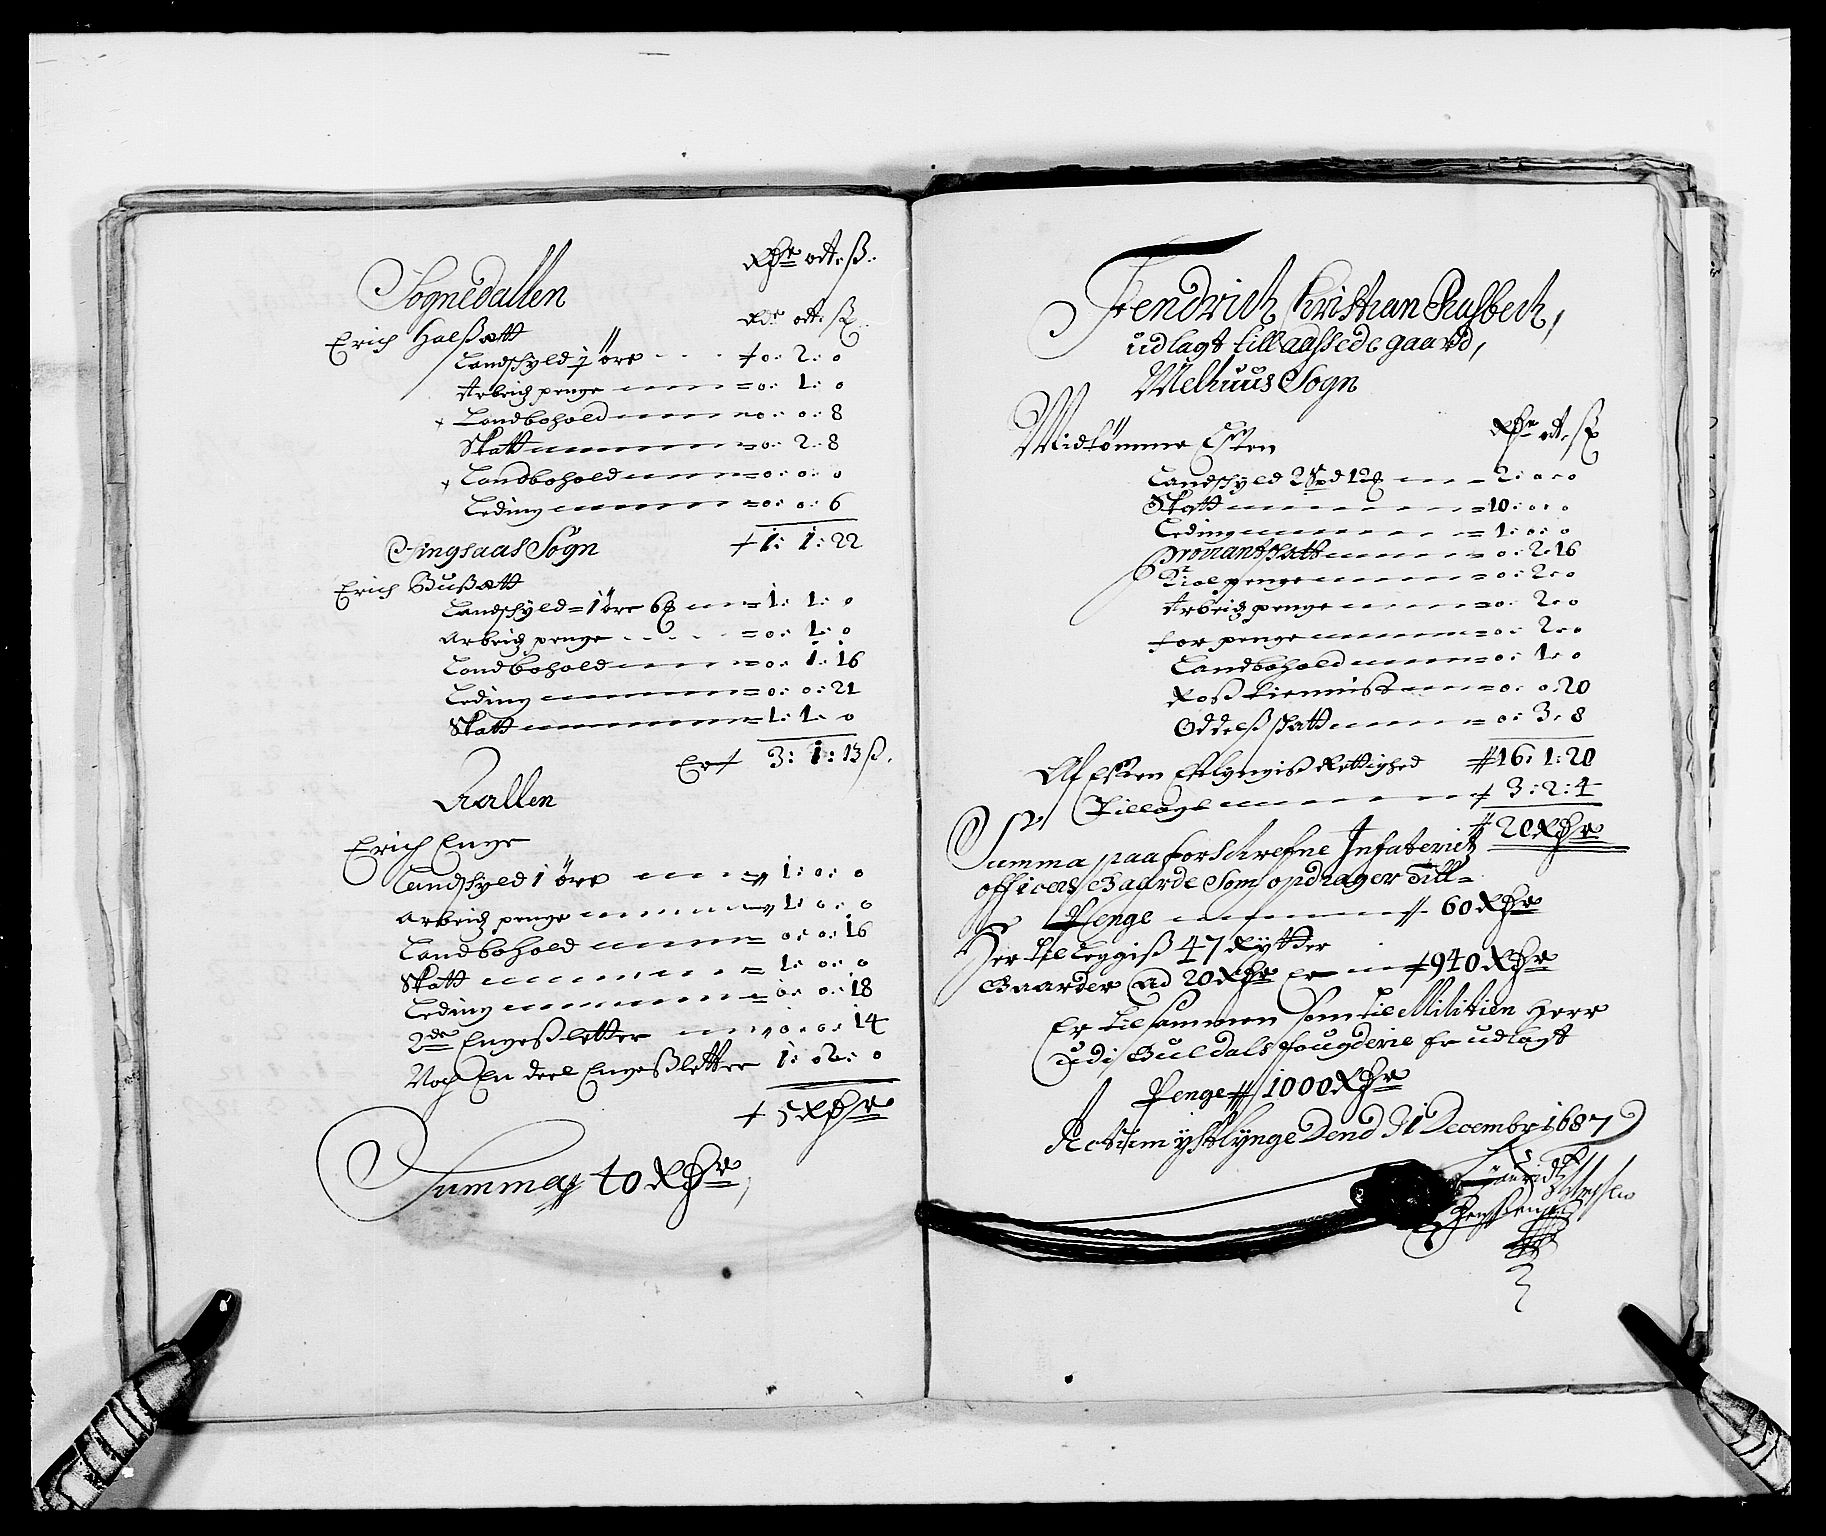 Sognedallen
Rdr ort ß
Erich Halßætt
Rdr ort ß
Landschyld ½ öre - - - + 0: 2: 0
Arbeidz penge = 0: 1: 0
Landbohold 0: 0: 8
Skatt = 0: 2: 8
Landbohold = 0: 0: 0
Leding = 0: 0: 6
+ 1: 1: 22
Singsaas Sogn
Erich Bußætt
Landschyld = 1 öre 6 = 1: 1: 0
Arbeidz penge = 0: 1: 0
Landbohold = 0: 1: 16
Leding = 0: 0: 21
Skatt = 1: 1: 0
Er + 3: 1: 13 ß.
Aallen
Erich Enge
Landschyld 1 öre 1: 0: 0
Arbeidz penge 1: 0: 0
Landbohold = 0: 0: 16
Skatt = 1: 0: 0
Leding = 0: 0: 18
2de Engeßletter 0: 0: 14
Noch En deel Engeßletter 1: 02: 0
+ 5 Rdr
Summa 40 Rdr
Fendrich Christian
udlagt till aassede gaard,
Melhuus Sogn
Rdr ort ß
Midtömme Esten
Landschyld 2 Spd 12 2: 0: 0
Skatt = 10: 0: 0
Leding = 1: 0: 0
Proviantskatt = 0: 2: 16
penge = 0: 2: 0
Arbeidz penge = 0: 2: 0
for penge = 0: 2: 0
Landbohold = 0: 1: 0
Roß tienniste = 0: 0: 20
Oddelß skatt = 0: 3: 8
16: 1: 20
Af Esten Rettighed
Tillagt + 3: 2: 4
20 Rdr
Summa paa forschrefne Infaterietz
officers Gaarde Som opdrager till=
Penge 60 Rdr
Her til leggiß 47 Rytter
Gaarder ad 20 Rdr Er 940 Rdr
Er tilsammen som til Militien herr
udi Guldals fougderie er udlagt
Penge 1000 Rdr
Dend 31 Decembr 1687